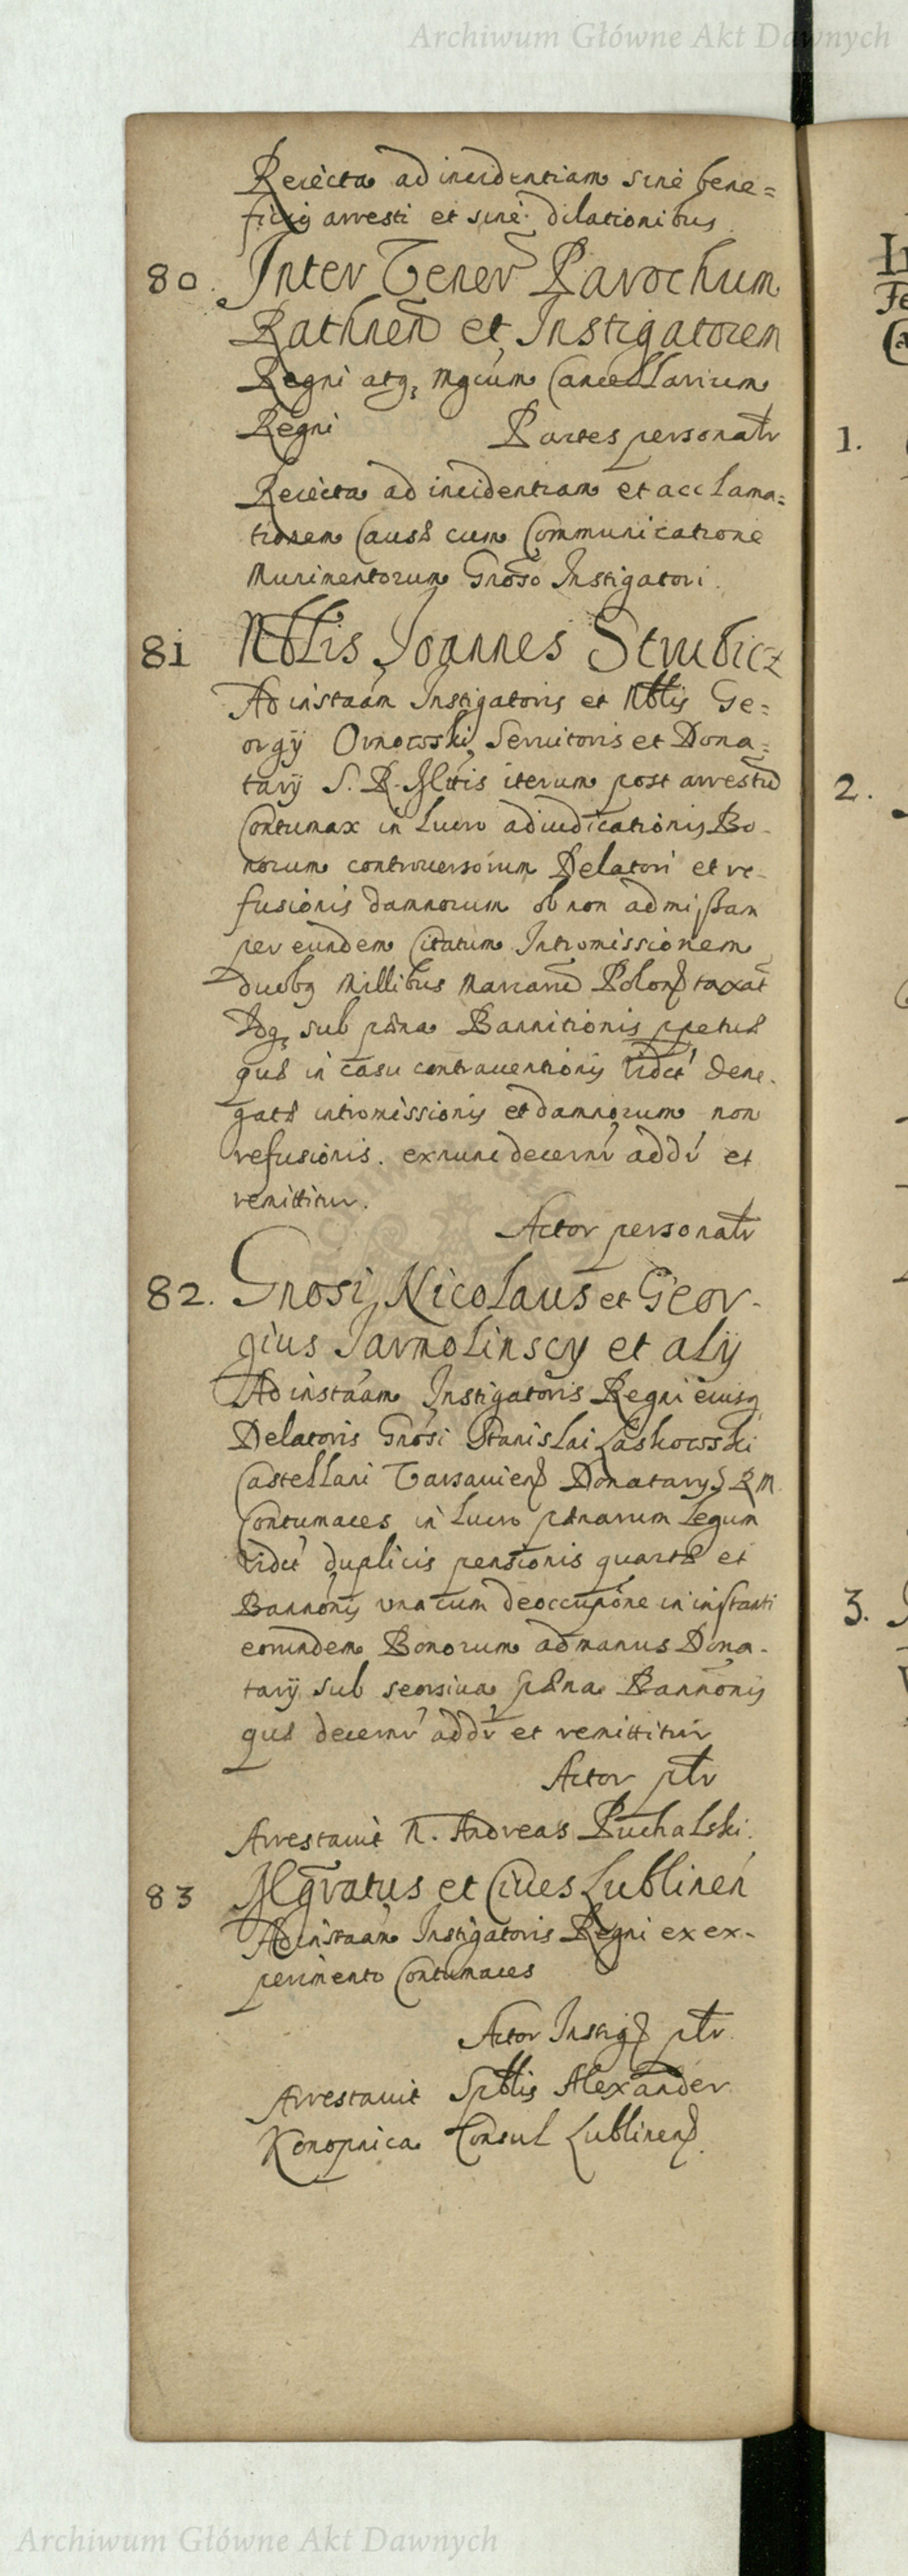 Archiwum Główne Akt Dawnych
Reiecta ad incidentiam sine bene=
ficiis arresti et sine dilationibus
80. Inter Gener Parochum
Rathnen et Instigatorem
Regni atq, Mgcum Cancellarium
Regni Partes personatr
Reiecta ad incidentiam et acclama=
tionem Causæ cum Communicatione
Munimentorum Gnoso Instigatori.
81 Nblis Joannes Strubicz
Ad instaam Instigatoris et Nblis Ge=
orgÿ Ornowski Seruitoris et Dona=
tarÿ S. R. Mttis iterum post arrestu
Contumax in lucro adiudicationis Bo-
norum controuersorum Delatori et re-
fusionis damnorum ob non admissam
per eundem Citatum Intromissionem
duobq Millibus Marcaru Polon taxat
Idq, sub pæna Bannitionis ppetuæ
quæ in casu contrauentionis vidct dene-
gatæ intromissionis et damnorum non
refusionis. exnunc decernr addr et
remittitur.
Actor personatr
82. Gnosi Nicolaus et Geor-
gius Jarmolinscy et alÿ
Ad instaam Instigatoris Regni eiusq
Delatoris Gnosi Stanislai Laskowski
Castellani Varsauien Donatarÿ S R M
Contumaces in lucro pænarum Legum
vidct duplicis pensionis quartæ et
Bannonis vna cum deoccupone in instanti
eorundem Bonorum ad manus Dona-
tarÿ sub seorsiua pæna Bannonis
quæ decernr addr et remittitur
Actor ptr
Arrestauit N. Andreas Puchalski.
83 Mgratus et Ciues Lublinen
Ad instaam Instigatoris Regni ex ex-
perimento Contumaces
Actor Instig ptr.
Arrestauit Spblis Alexander
Konopnica Consul Lublinen.
1.
2.
3.
Archiwum Główne Akt Dawnych